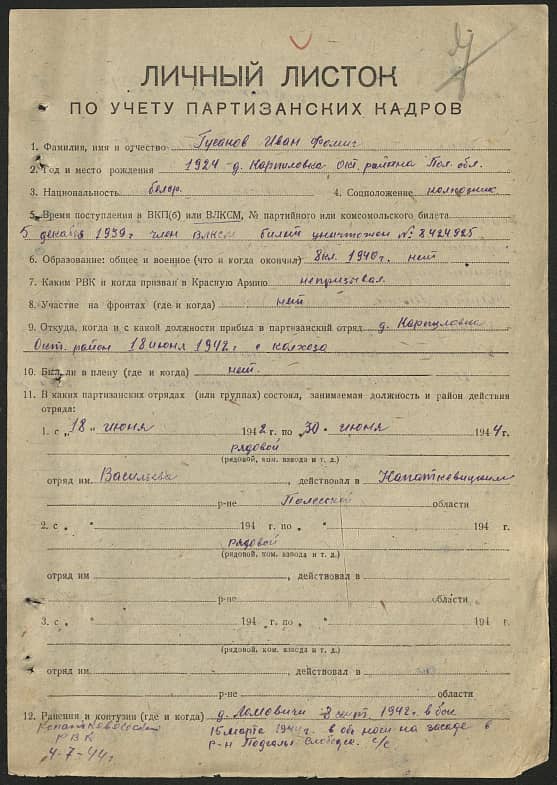 ЛИЧНЫЙ ЛИСТОК
ПО УЧЕТУ ПАРТИЗАНСКИХ КАДРОВ
1. Фамилия, имя и отчество Гусаков Иван Фомич
2. Год и место рождения 1924 д. Карпиловка Окт. района Пол. обл.
3. Национальность белор. 4. Соцположение колхозник
5. Время поступления в ВКП(б) или ВЛКСМ, № партийного или комсомольского билета
5 декабря 1939 г член ВЛКСМ билет уничтожен № 8424925
6. Образование: общее и военное (что и когда окончил) 8 кл. 1940 г. нет
7. Каким РВК и когда призван в Красную Армию непризывал
8. Участие на фронтах (где и когда) нет
9. Откуда, когда и с какой должности прибыл в партизанский отряд д. Карпиловка
Окт. район 18 июня 1942 г. с колхоза
10. Был ли в плену (где и когда) нет.
11. В каких партизанских отрядах (или группах) состоял, занимаемая должность и район действия
отряда:
1. с „18" июня 1942 г. по „30" июня 1944 г.
рядовой
(рядовой, ком. взвода и т. д.)
отряд им Васильева, действовал в Капаткевицким
р-не Полесской области
2. с „ " 194 г. по „ " 194 г.
рядовой
(рядовой, ком. взвода и т. д.)
отряд им , действовал в
р-не области
3. с „ " 194 г. по „ " 194 г.
(рядовой, ком. взвода и т. д.)
отряд им , действовал в
р-не области
12. Ранения и контузии (где и когда) д. Ломовичи 8 сент. 1942. в бою
15 марта 1944 г. в об ноги на засаде в
р-н с/с.
РВК
4-7-44 г.